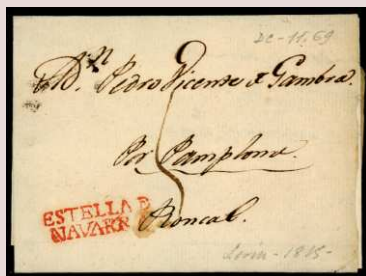 A D.ⁿ Pedro Vicente de Gambra.
Por Pamplona.
Roncal.
ESTELLA D
NAVARR
5
Lerin - 1815 -